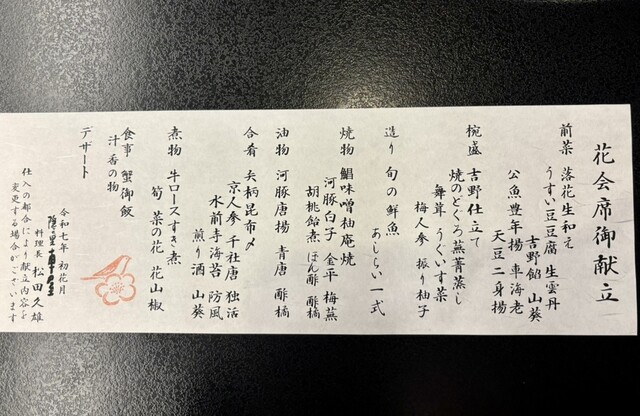 花会席御献立
前菜 落花生和え
うすい豆豆腐 生雲丹
吉野餡 山葵
公魚豊年揚 車海老
天豆二身揚
椀盛 吉野仕立て
焼のどぐろ蕪菁蒸し
舞茸 うぐいす菜
梅人参 振り柚子
造り 旬の鮮魚
あしらい一式
焼物 鯧味噌柚庵焼
河豚白子 金平 梅蕪
胡桃飴煮 ぽん酢 酢橘
油物 河豚唐揚 青唐 酢橘
合肴 矢柄昆布〆
京人参 千社唐 独活
水前寺海苔 防風
煎り酒 山葵
煮物 牛ロースすき煮
筍 菜の花 花山椒
食事 蟹御飯
汁 香の物
デザート
令和七年 初花月
料理長 松田久雄
仕入の都合により献立内容を
変更する場合がございます